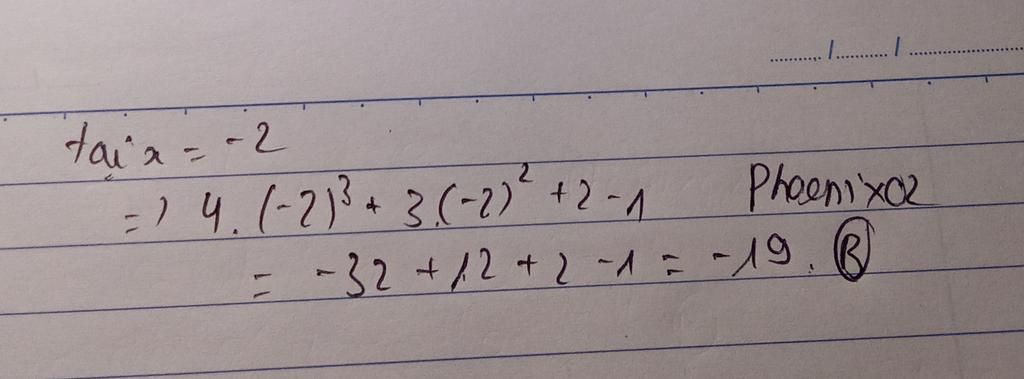 tại x = -2
=) 4.(-2)³ + 3.(-2)² + 2 - 1 Phoenix02
= -32 + 12 + 2 - 1 = -19. Ⓑ